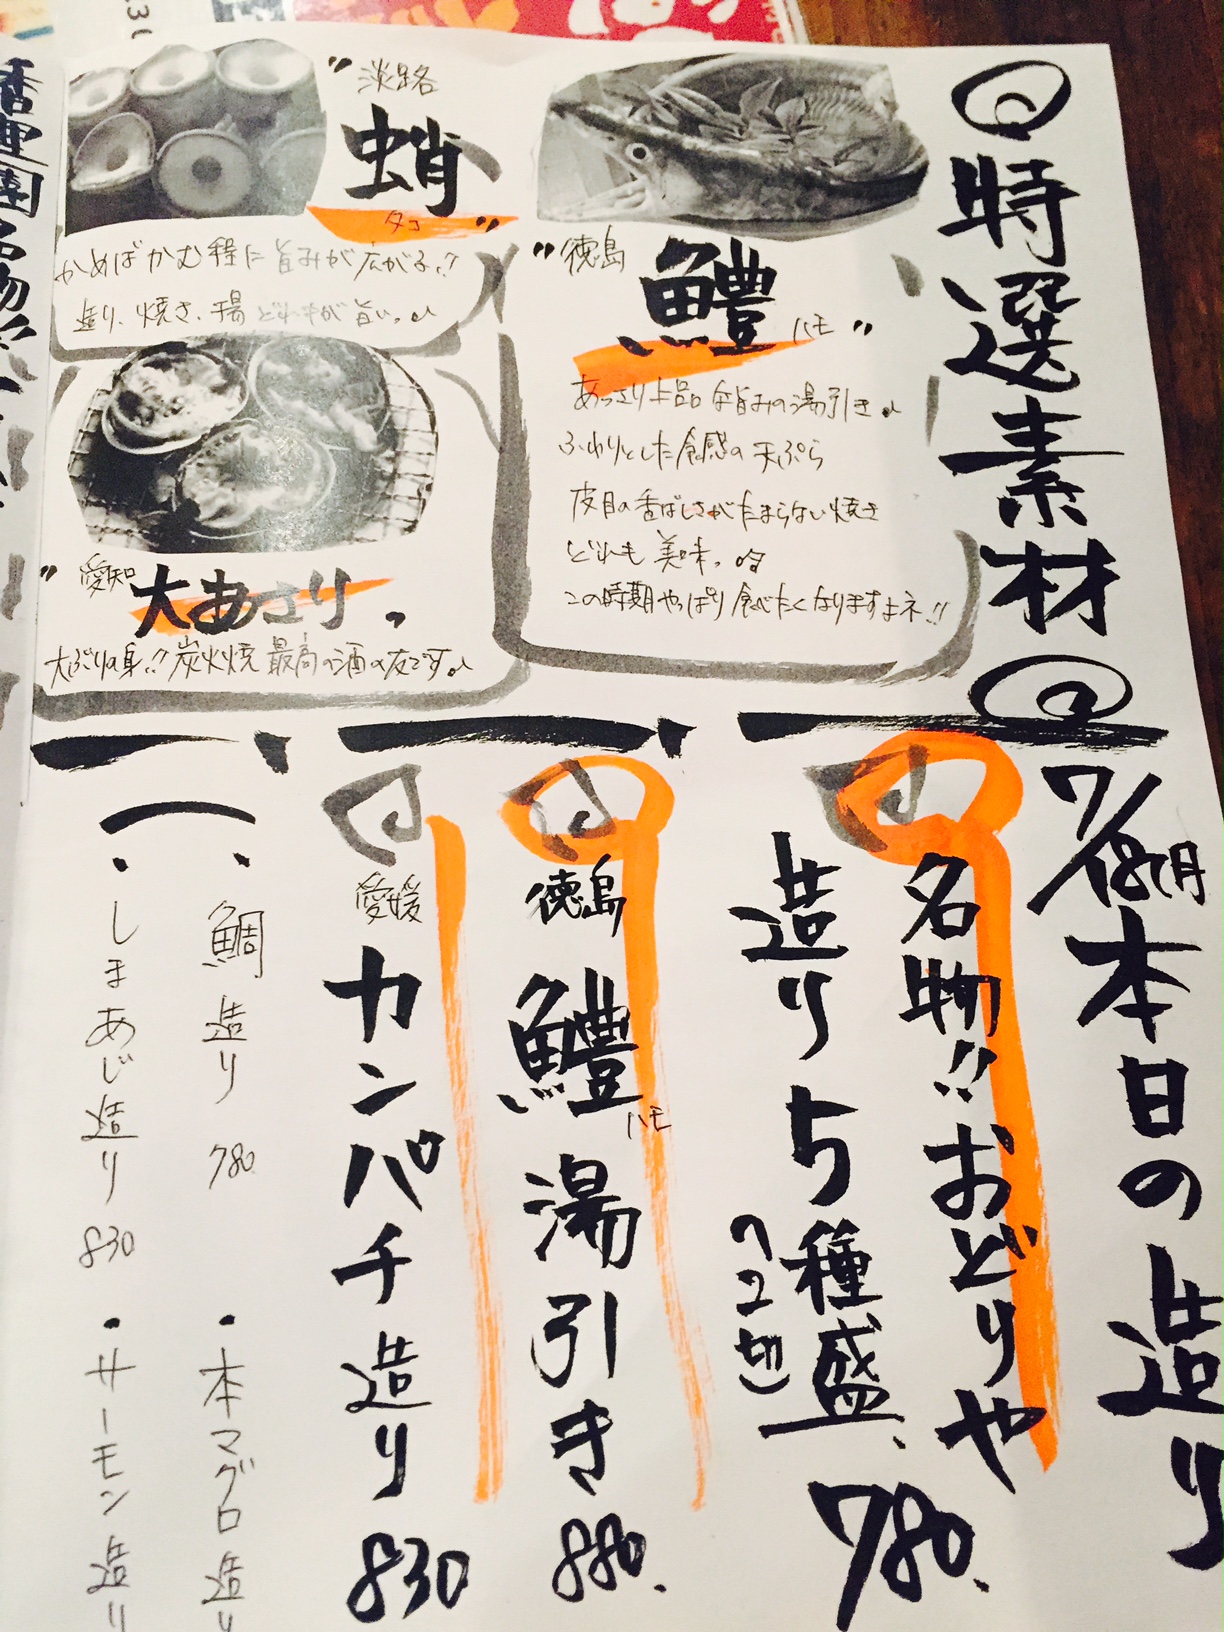 特選素材
"徳島
鱧
ハモ"
あっさり上品な旨みの湯引き♪
ふわりとした食感の天ぷら
皮目の香ばしさがたまらない焼き
どれも美味っ
この時期やっぱり食べたくなりますよネ!!
"淡路
蛸
タコ"
かめばかむ程に旨みが広がる!!
造り、焼き、揚 どれもが旨いっ♪
"愛知
大あさり"
大ぶりの身!!炭火焼 最高の酒の友です♪
本日の造り
名物!!おどりや
造り5種盛
(2切)
780.
徳島
鱧
ハモ
湯引き
880.
愛媛
カンパチ造り
830
・鯛造り 780
・本マグロ造り
・しまあじ造り 830
・サーモン造り
香里園名物